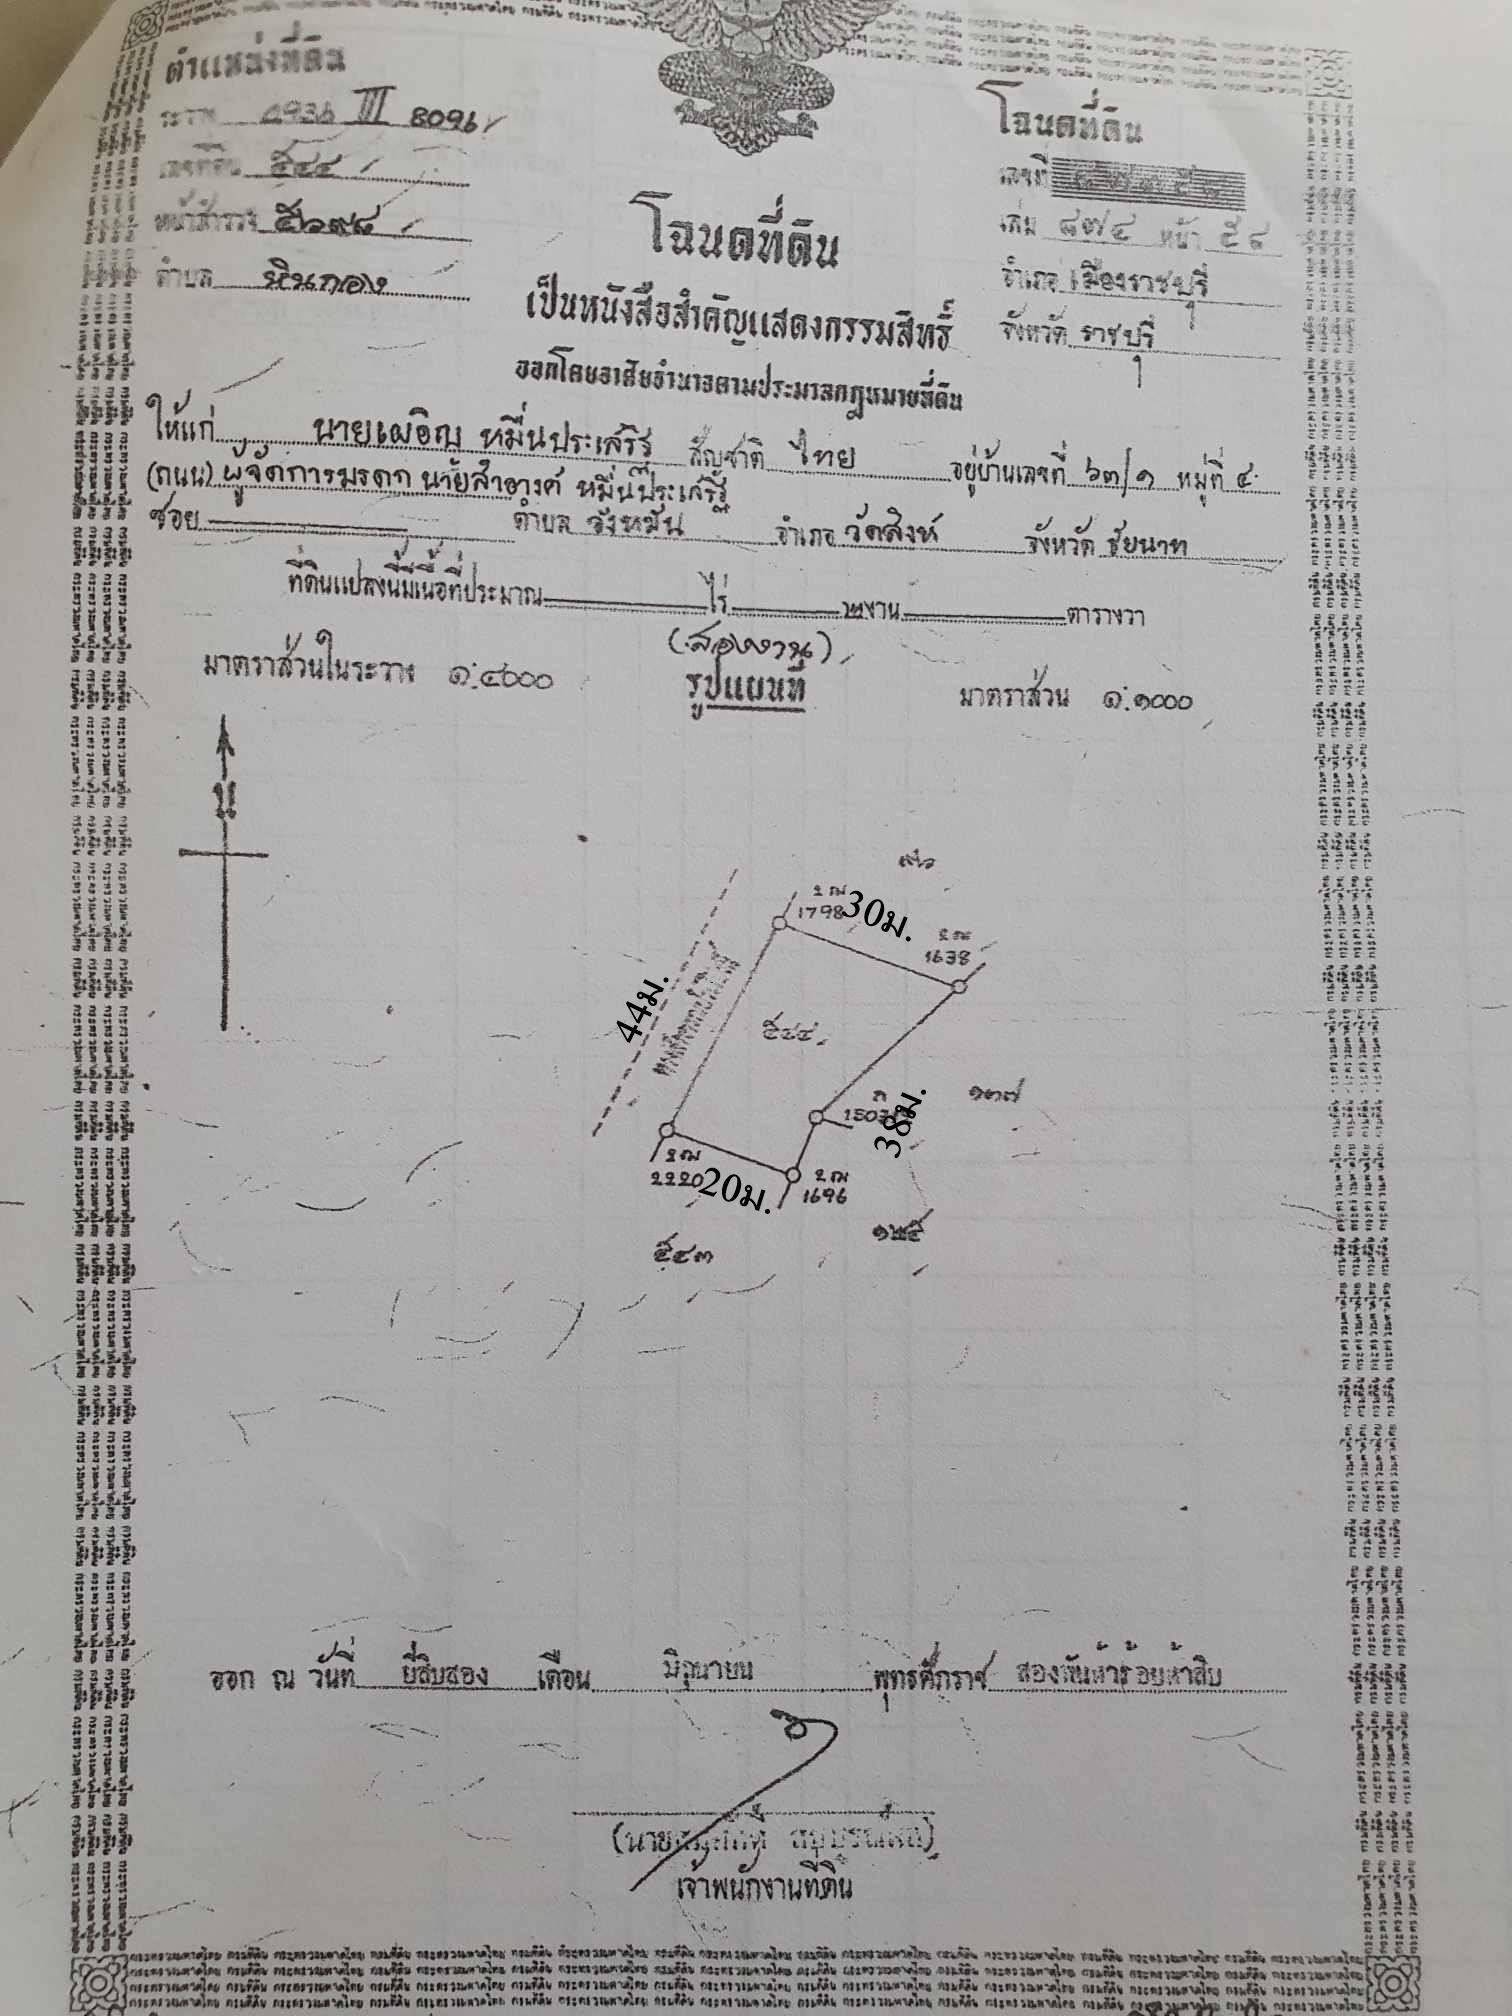 ตำแหน่งที่ดิน
ระวาง 4936 III 8096
เลขที่ดิน ๕๔๔
หน้าสำรวจ ๕๖๙๘
ตำบล หินกอง
โฉนดที่ดิน
เลขที่
เล่ม ๘๗๔ หน้า ๕๘
อำเภอ เมืองราชบุรี
จังหวัด ราชบุรี
โฉนดที่ดิน
เป็นหนังสือสำคัญแสดงกรรมสิทธิ์
ออกโดยอาศัยอำนาจตามประมวลกฎหมายที่ดิน
ให้แก่ นายเผอิญ หมื่นประเสริฐ สัญชาติ ไทย อยู่บ้านเลขที่ ๖๓/๑ หมู่ที่ ๔
(ถนน) ผู้จัดการมรดก นายสำอางค์ หมื่นประเสริฐ
ซอย ตำบล วังหมัน อำเภอ วัดสิงห์ จังหวัด ชัยนาท
ที่ดินแปลงนี้มีเนื้อที่ประมาณ ไร่ ๒ งาน ตารางวา
(สองงาน)
มาตราส่วนในระวาง ๑:๔๐๐๐ รูปแผนที่ มาตราส่วน ๑:๑๐๐๐
น
๙๖
๒ฌ
1798
30ม.
๒ฌ
1638
44ม.
ทางสาธารณประโยชน์
๕๔๔
๑๓๗
38ม.
๒ฌ
2220
20ม.
๒ฌ
1696
๑๒๕
๕๔๓
ออก ณ วันที่ ยี่สิบสอง เดือน มิถุนายน พุทธศักราช สองพันห้าร้อยห้าสิบ
เจ้าพนักงานที่ดิน